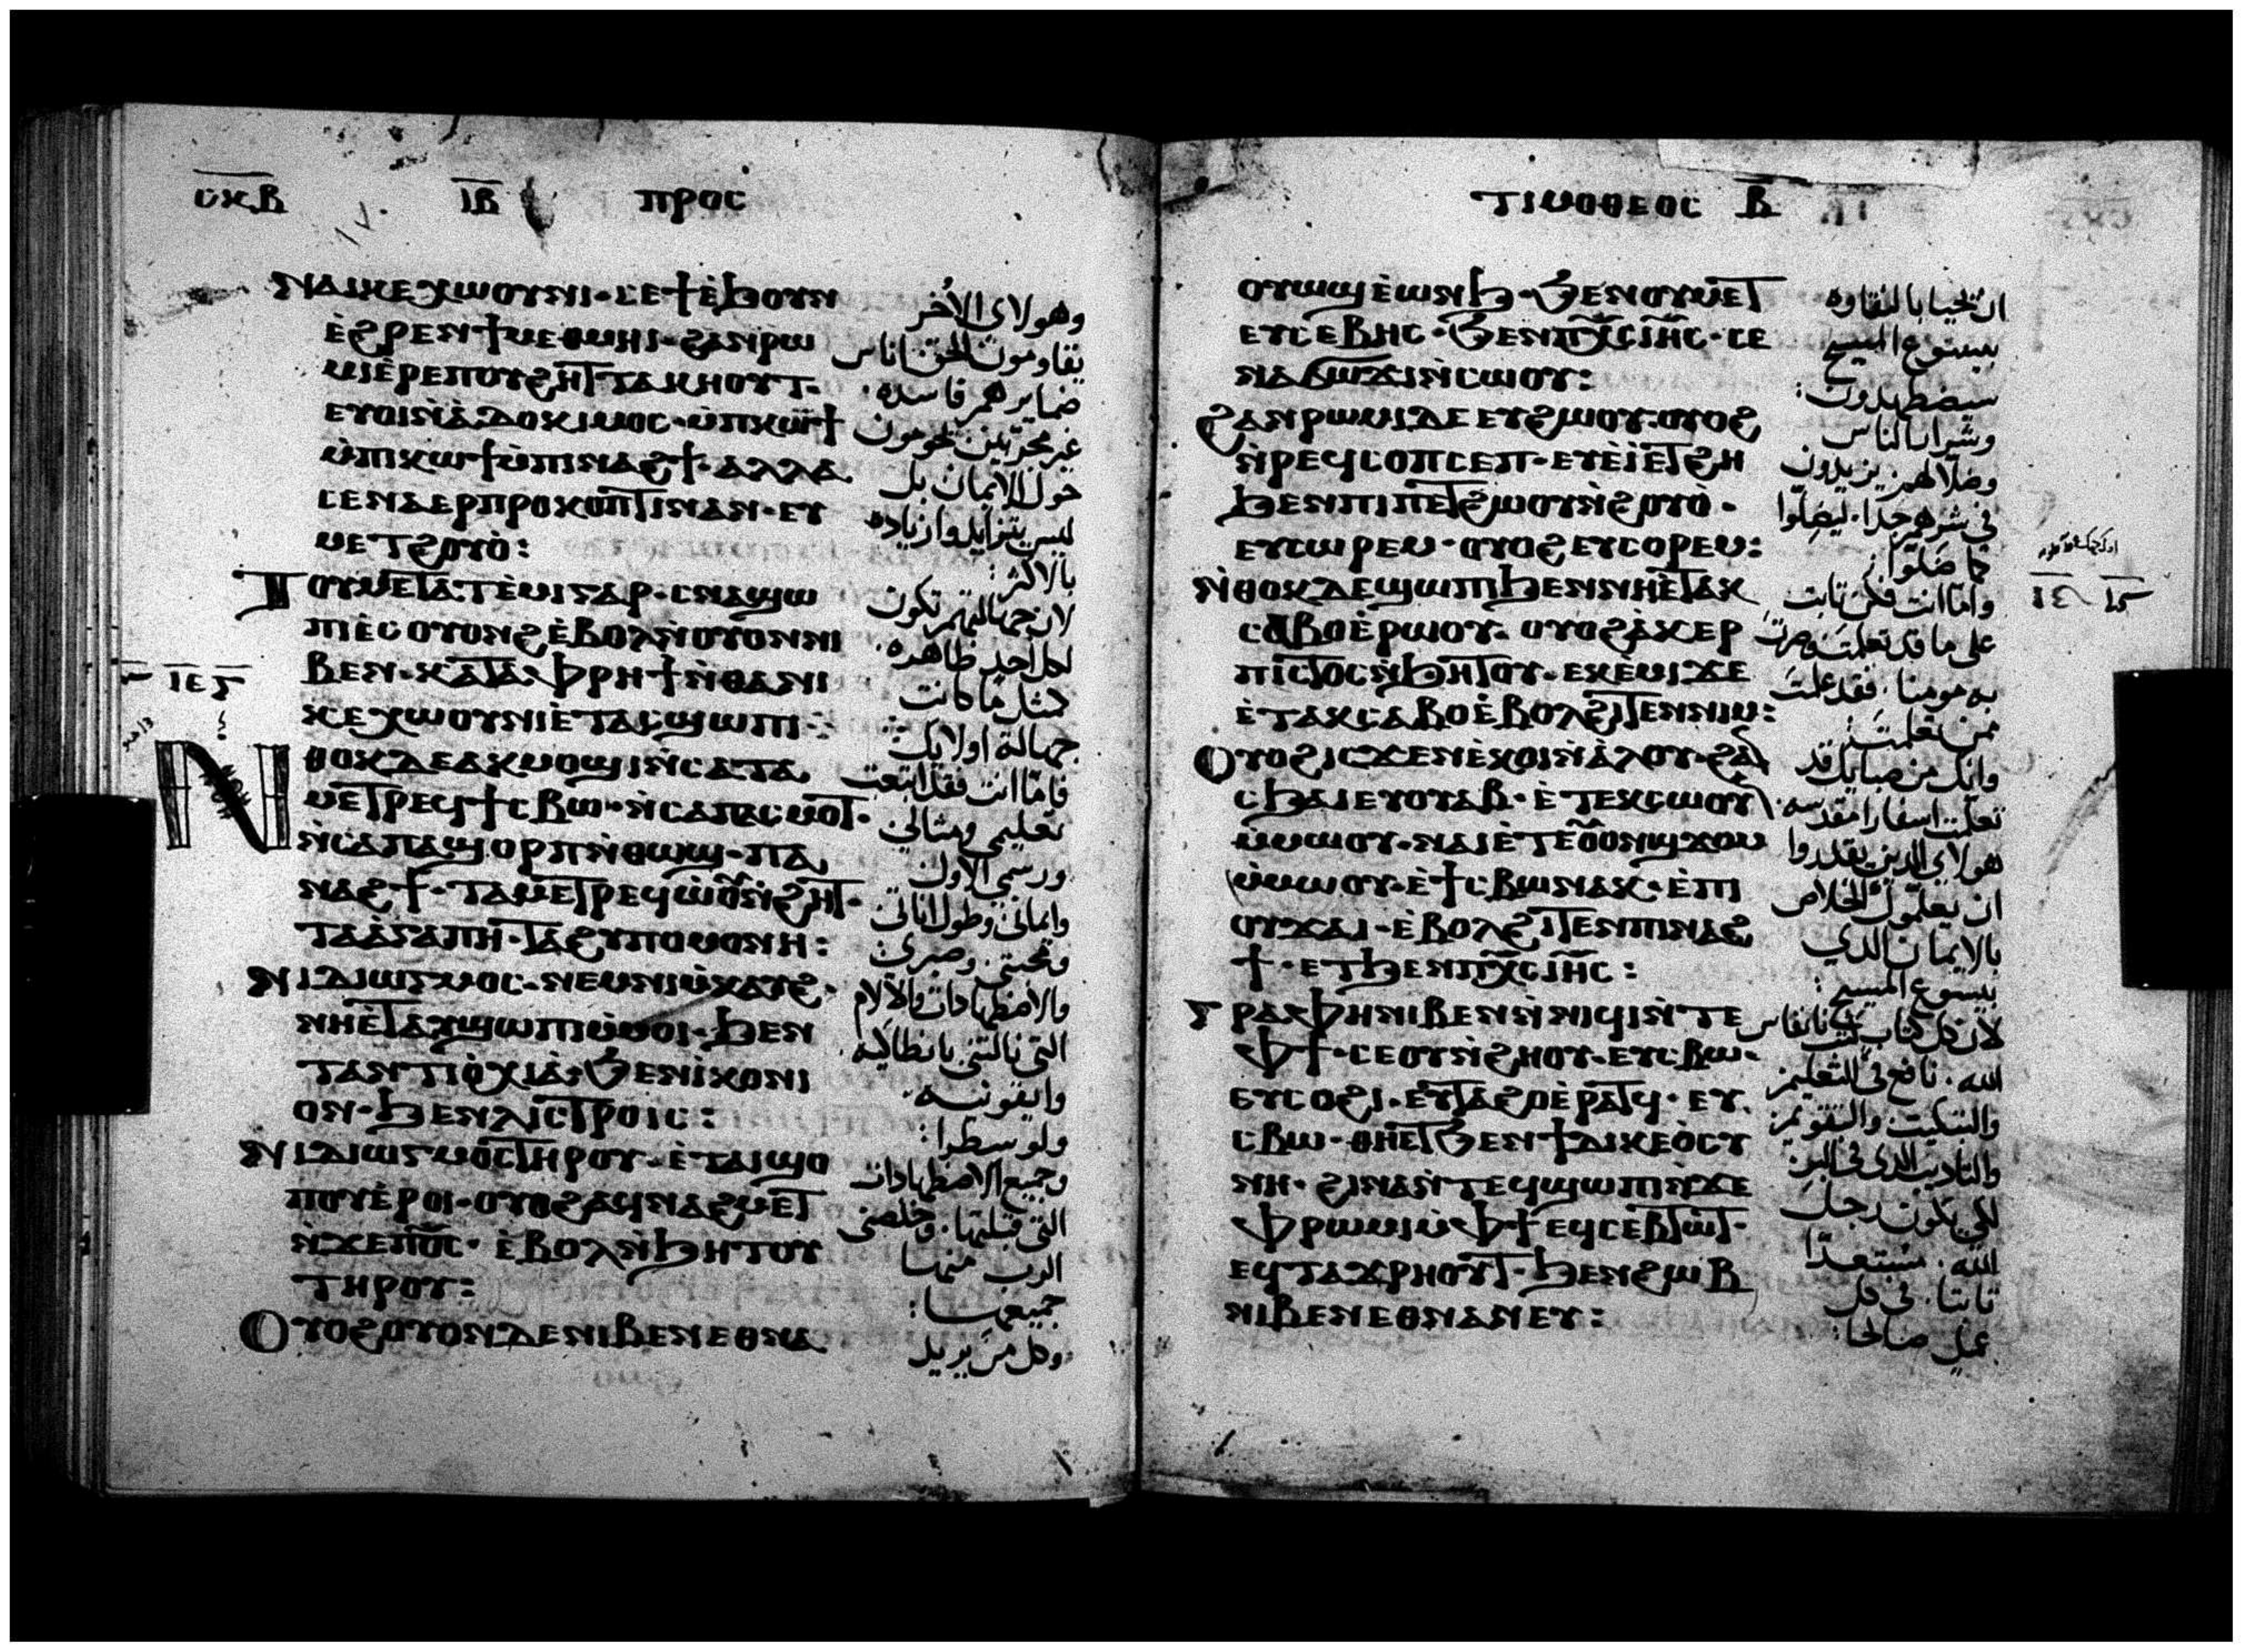 ⲥⲕⲃ ⲓⲃ ⲡⲣⲟⲥ
ⲛⲁⲓⲕⲉⲭⲱⲟⲩⲛⲓ· ⲥⲉϯⲉ̀ϧⲟⲩⲛ
ⲉ̀ϩⲣⲉⲛϯⲙⲉⲑⲙⲏⲓ· ϩⲁⲛⲣⲱ
ⲙⲓⲉ̀ⲣⲉⲡⲟⲩϩⲏⲧ ⲧⲁⲕⲏⲟⲩⲧ·
ⲉⲩⲟⲓⲛ̀ⲁ̀ⲇⲟⲕⲓⲙⲟⲥ· ⲙ̀ⲡⲕⲱϯ
ⲙ̀ⲡⲓⲕⲱϯⲙ̀ⲡⲓⲛⲁϩϯ· ⲁⲗⲗⲁ
ⲥⲉⲛⲁⲉⲣⲡⲣⲟⲕⲟⲡⲧⲓⲛⲁⲛ· ⲉⲩ
ⲙⲉⲧϩⲟⲩⲟ̀:
ⲧⲟⲩⲙⲉⲧⲁⲧⲉ̀ⲙⲓⲅⲁⲣ· ⲥⲛⲁϣⲱ
ⲡⲓⲉⲥⲟⲩⲟⲛϩ ⲉ̀ⲃⲟⲗⲛ̀ⲟⲩⲟⲛⲛⲓ
ⲃⲉⲛ· ⲕⲁⲧⲁ ⲫⲣⲏϯⲛ̀ⲑⲁⲛⲓ
ⲕⲉⲭⲱⲟⲩⲛⲓⲉ̀ⲧⲁⲥϣⲱⲡⲓ:
ⲛⲑⲟⲕⲇⲉⲁⲕⲙⲟϣⲓⲛ̀ⲥⲁⲧⲁ
ⲙⲉⲧⲣⲉϥϯⲥⲃⲱ· ⲛ̀ⲥⲁⲡⲁⲥⲙⲟⲧ·
ⲛ̀ⲥⲁⲡⲁϣⲟⲣⲡⲛ̀ⲑⲱϣ· ⲡⲁ
ⲛⲁϩϯ· ⲧⲁⲙⲉⲧⲣⲉϥⲱ̀ⲟⲩⲛ̀ϩⲏⲧ·
ⲧⲁⲁ̀ⲅⲁⲡⲏ· ⲧⲁϩⲩⲡⲟⲙⲟⲛⲏ:
ⲛⲓⲇⲓⲱⲅⲙⲟⲥ· ⲛⲉⲙⲛⲓⲙ̀ⲕⲁⲩϩ·
ⲛⲏⲉ̀ⲧⲁⲩϣⲱⲡⲓⲙ̀ⲙⲟⲓ· ϧⲉⲛ
ⲧⲁⲛⲧⲓⲟ̀ⲭⲓⲁ̀· ϧⲉⲛⲓ̀ⲕⲟⲛⲓ
ⲟⲛ· ϧⲉⲛⲗⲓⲥⲧⲣⲟⲓⲥ:
ⲛⲓⲇⲓⲱⲅⲙⲟⲥⲧⲏⲣⲟⲩ· ⲉ̀ⲧⲁⲓϣⲟ
ⲡⲟⲩⲉ̀ⲣⲟⲓ· ⲟⲩⲟϩⲁϥⲛⲁϩⲙⲉⲧ
ⲛ̀ϫⲉⲡϭⲥ· ⲉ̀ⲃⲟⲗⲛ̀ϧⲏⲧⲟⲩ
ⲧⲏⲣⲟⲩ:
ⲟⲩⲟϩⲟⲩⲟⲛⲇⲉⲛⲓⲃⲉⲛⲉⲑⲛⲁ
وهولاى الاُخر
يقاومون الحق اناس
ضمايرهم فاسده
غير مجربين يحومون
حول الايمان بل
ليس بتزايد وازياده
بالاكثر:
لان جهالتهم تكون
لكل احد ظاهره
كمثل ما كانت
جهالة اولايك:
فاما انت فقد اتبعت
تعليمى ومثالى
ورسمى الاول
وايمانى وطول اناتى
ومحبتى وصبرى
والاضطهادات والالام
التى نالتنى بانطاكيه
وايقونيه
ولوسطرا:
وجميع الاضطهادات
التى قبلتها. وخلصنى
الرب منها
جميعها:
وكل من يريد
ⲧⲓⲙⲟⲑⲉⲟⲥ ⲃ
ⲟⲩⲱϣⲉ̀ⲱⲛϧ· ϧⲉⲛⲟⲩⲙⲉⲧ
ⲉⲩⲥⲉⲃⲏⲥ· ϧⲉⲛⲡⲭⲥⲓⲏⲥ· ⲥⲉ
ⲛⲁϭⲱϫⲓⲛ̀ⲥⲱⲟⲩ:
ϩⲁⲛⲣⲱⲙⲓⲇⲉ ⲉⲩϩⲱⲟⲩ· ⲟⲩⲟϩ
ⲛ̀ⲣⲉϥⲥⲟⲡⲥⲉⲡ· ⲉⲩⲉ̀ⲓ̀ⲉⲧϩⲏ
ϧⲉⲛⲡⲓⲡⲉⲧϩⲱⲟⲩⲛ̀ϩⲟⲩⲟ̀·
ⲉⲩⲥⲱⲣⲉⲙ· ⲟⲩⲟϩ ⲉⲩⲥⲟⲣⲉⲙ:
ⲛ̀ⲑⲟⲕⲇⲉϣⲱⲡⲓϧⲉⲛⲛⲏⲉ̀ⲧⲁⲕ
ⲥⲁⲃⲟⲉ̀ⲣⲱⲟⲩ· ⲟⲩⲟϩⲁ̀ⲕⲉⲣ
ⲡⲓⲥⲧⲟⲥⲛ̀ϧⲏⲧⲟⲩ· ⲉⲕⲉ̀ⲙⲓϫⲉ
ⲉ̀ⲧⲁⲕⲥⲁⲃⲟⲉ̀ⲃⲟⲗϩⲓⲧⲉⲛⲛⲓⲙ:
ⲟⲩⲟϩⲓⲥϫⲉⲛⲉ̀ⲕⲟⲓⲛ̀ⲁ̀ⲗⲟⲩ· ϩⲁ
ⲥϧⲁⲓⲉⲩⲟⲩⲁⲃ· ⲉ̀ⲧⲉⲕⲥⲱⲟⲩ
ⲙ̀ⲙⲱⲟⲩ· ⲛⲁⲓⲉ̀ⲧⲉⲟⲩⲟⲛϣϫⲟⲙ
ⲙ̀ⲙⲱⲟⲩ· ⲉ̀ϯⲥⲃⲱⲛⲁⲕ· ⲉ̀ⲡⲓ
ⲟⲩϫⲁⲓ· ⲉ̀ⲃⲟⲗϩⲓⲧⲉⲛⲡⲓⲛⲁϩ
ϯ· ⲉⲧϧⲉⲛⲡⲭⲥⲓⲏⲥ:
ⲅⲣⲁⲫⲏⲛⲓⲃⲉⲛⲛ̀ⲛⲓϥⲓⲛ̀ⲧⲉ
ⲫϯ· ⲥⲉⲟⲩⲛ̀ϩⲏⲟⲩ· ⲉⲩⲥⲃⲱ·
ⲉⲩⲥⲟϩⲓ· ⲉⲩⲧⲁϩⲟⲉ̀ⲣⲁⲧϥ· ⲉⲩ
ⲥⲃⲱ· ⲑⲏⲉⲧϧⲉⲛϯⲇⲓⲕⲉⲟ̀ⲥⲩ
ⲛⲏ· ϩⲓⲛⲁⲛ̀ⲧⲉϥϣⲱⲡⲓⲛ̀ϫⲉ
ⲫⲣⲱⲙⲓⲙ̀ⲫϯ ⲉϥⲥⲉⲃⲧⲱⲧ·
ⲉϥⲧⲁϫⲣⲏⲟⲩⲧ· ϧⲉⲛϩⲱⲃ
ⲛⲓⲃⲉⲛⲉⲑⲛⲁⲛⲉⲩ:
ان يحيا بالنقاوه
بيسوع المسيح
سيضطهدون:
وشرار الناس
وضلالهم يزيدون
فى شرهم جدا. ليضلوا
كما ضلوا:
واما انت فكن ثابت
على ما قد تعلمت وصرت
به مومنا. فقد علمت
ممن تعلمت:
وانك من صبايك قد
تعلمت اسفارا مقدسه
هولاى الذين يقدروا
ان يعلموك الخلاص
بالايمان الذى
بيسوع المسيح:
لان كل كتاب بانفاس
الله. نافع فى التعليم
والتبكيت والتقويم
والتاديب الذى فى البر
لكى يكون رجل
الله. مستعدا
ثابتا. فى كل
عمل صالحا: